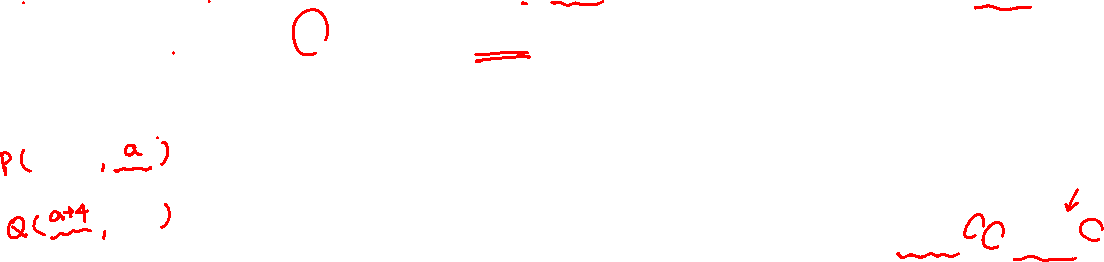 P(    , a)
Q(a+4,    )